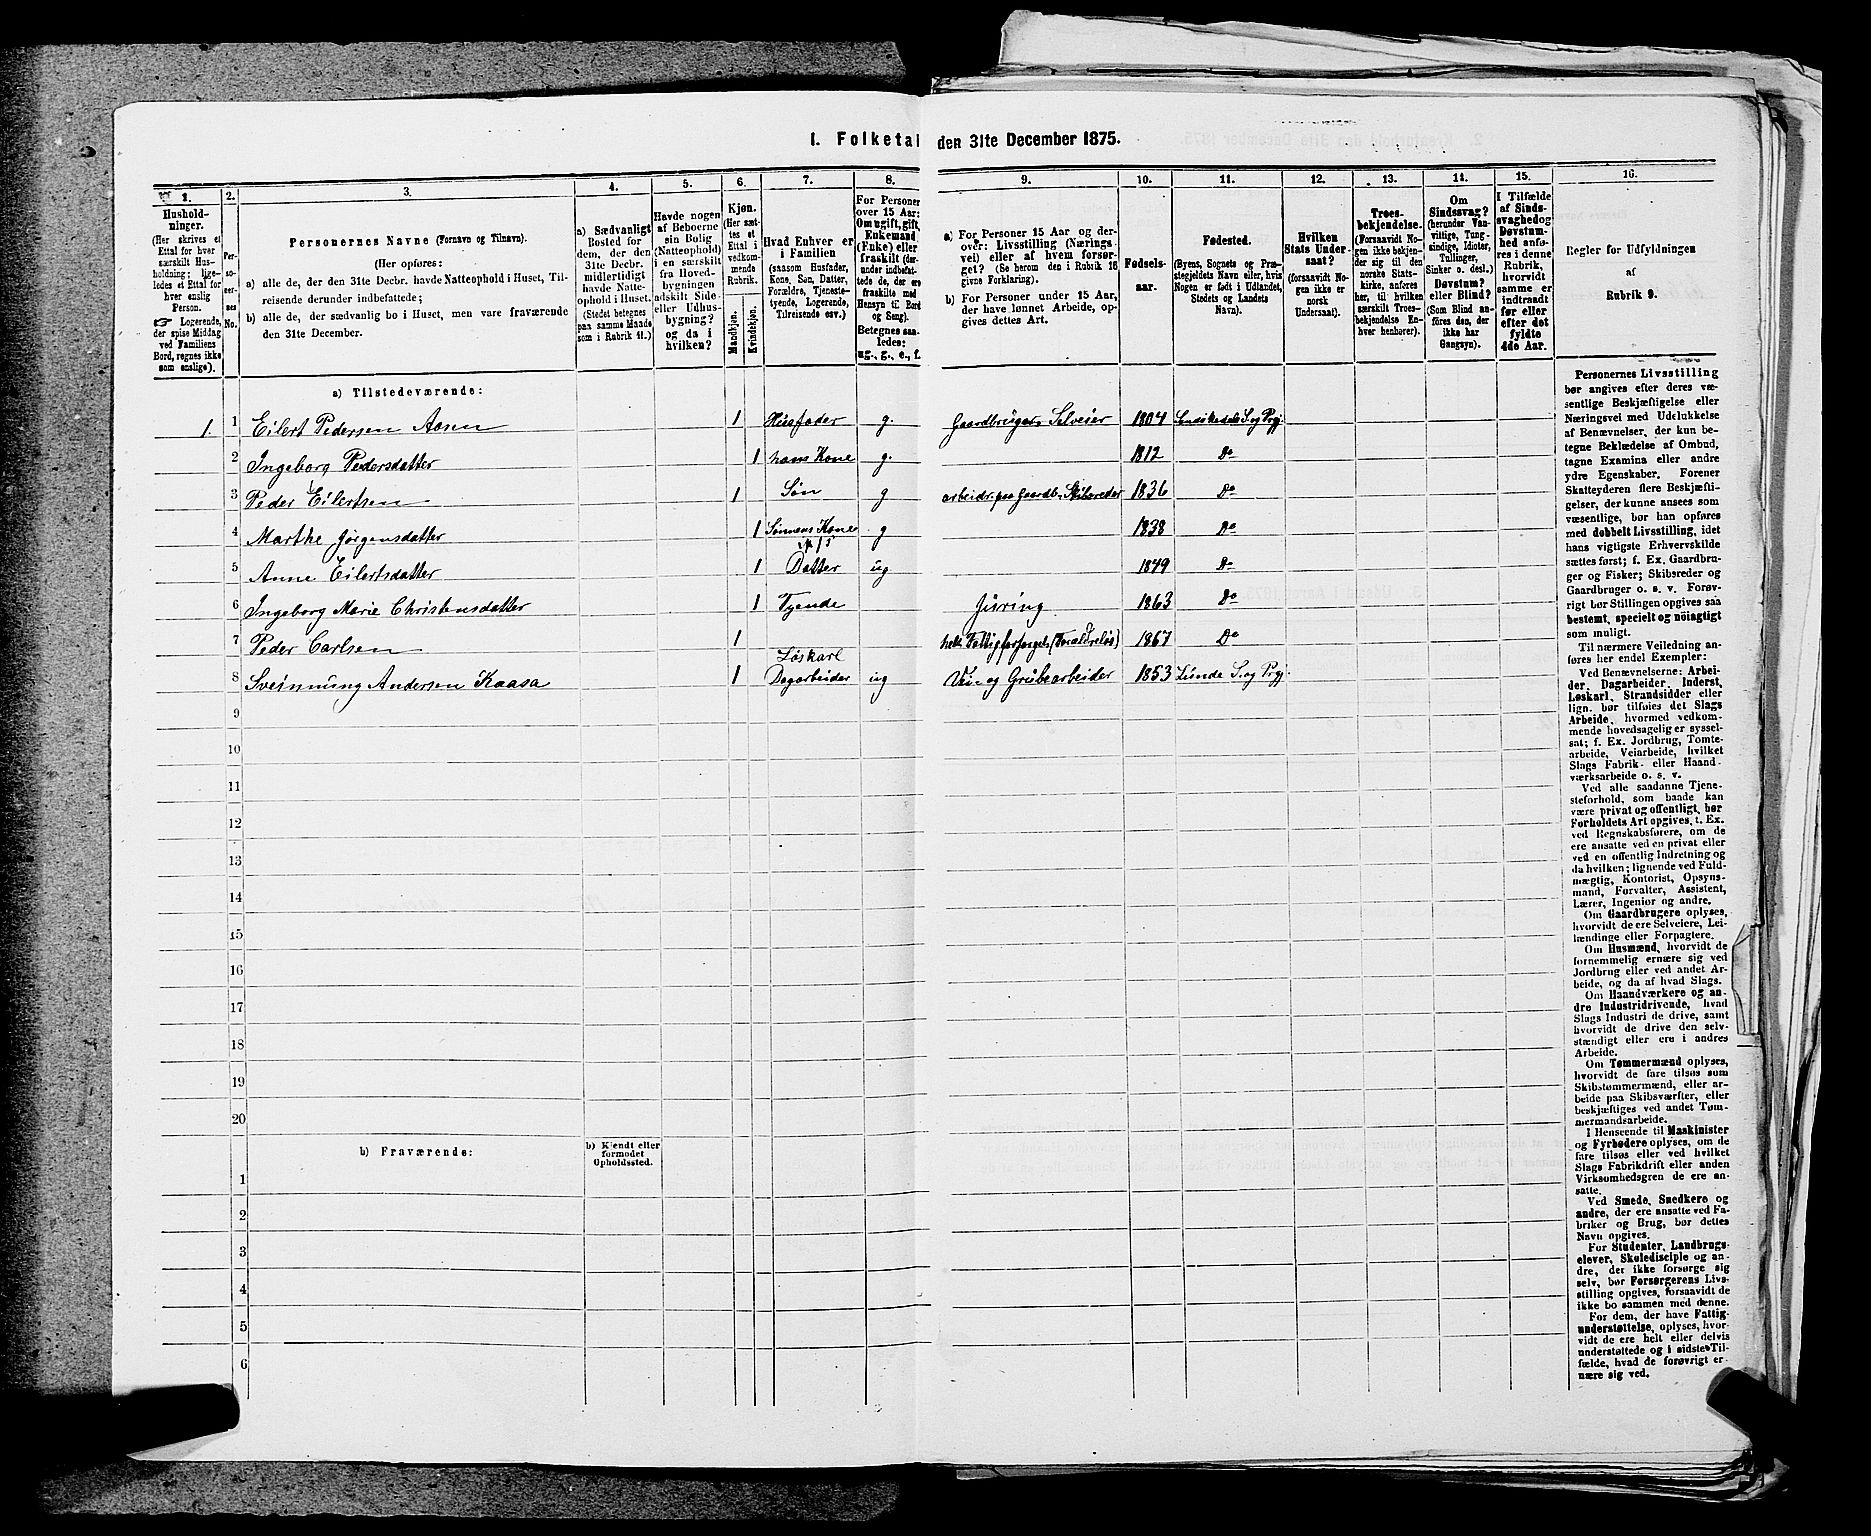 1. Folketal den 31te December 1875.
1. 2. 3. 4. 5. 6. 7. 8. 9. 10. 11. 12. 13. 14. 15. 16.
Hushold-
ninger.
(Her skrives et
Ettal for hver
særskilt Hus-
holdning; lige-
ledes et Ettal for
hver enslig
Person.
☞ Logerende,
der spise Middag
ved Familiens
Bord, regnes ikke
som enslige).
Per-
so-
ner-
nes
No.
Personernes Navne (Fornavn og Tilnavn).
(Her opføres:
a) alle de, der den 31te Decbr. havde Natteophold i Huset, Til-
reisende derunder indbefattede;
b) alle de, der sædvanlig bo i Huset, men vare fraværende
den 31te December.
a) Sædvanligt
Bosted for
dem, der den
31te Decbr.
midlertidigt
havde Natte-
ophold i Huset.
(Stedet betegnes
paa samme Maade
som i Rubrik 11.)
Havde nogen
af Beboerne
sin Bolig
(Natteophold)
i en særskilt
fra Hoved-
bygningen
adskilt Side-
eller Udhus-
bygning?
og da i
hvilken?
Kjøn.
(Her sæt-
tes et
Ettal i
vedkom-
mende
Rubrik.
Mandkjøn.
Kvindekjøn.
Hvad Enhver er
i Familien
(saasom Husfader,
Kone, Søn, Datter,
Forældre, Tjeneste-
tyende, Logerende,
Tilreisende osv.)
For Personer
over 15 Aar:
Om ugift, gift,
Enkemand
(Enke) eller
fraskilt (der-
under indbefat-
tede de, der ere
fraskilte med
Hensyn til Bord
og Seng).
Betegnes saa-
ledes:
ug., g., e., f.
a) For Personer 15 Aar og der-
over: Livsstilling (Nærings-
vei) eller af hvem forsør-
get? (Se herom den i Rubrik 16
givne Forklaring).
b) For Personer under 15 Aar,
der have lønnet Arbeide, op-
gives dettes Art.
Fødsels-
aar.
Fødested.
(Byens, Sognets og Præ-
stegjeldets Navn eller, hvis
Nogen er født i Udlandet,
Stedets og Landets
Navn).
Hvilken
Stats Under-
saat?
(forsaavidt No-
gen ikke er
norsk
Undersaat).
Troes-
bekjendelse.
(Forsaavidt No-
gen ikke bekjen-
der sig til den
norske Stats-
kirke, anføres
her, til hvilken
særskilt Troes-
bekjendelse En-
hver henhører).
Om
Sindssvag?
(herunder Van-
vittige, Tung-
sindige, Idioter,
Tullinger,
Sinker o. desl.)
Døvstum?
eller Blind?
(Som Blind an-
føres den, der
ikke har
Gangsyn).
I Tilfælde
af Sinds-
svaghed og
Døvstum-
hed anfø-
res i denne
Rubrik,
hvorvidt
samme er
indtraadt
før eller
efter det
fyldte
4de Aar.
Regler for Udfyldningen
af
Rubrik 9.
a) Tilstedeværende:
1. 1 Eilert Pedersen Aasen 1 Husfader g. Gaardbruger Selveier 1804 Sandsherads S. og Prgj.
2 Ingeborg Pedersdatter 1 hans Kone g. 1812 Do
3 Peder Eilertsen 1 Søn g arbeider paa Gaardb. Skibsreder 1836 Do
4 Marthe Jørgensdatter 1 Sønnens Kone g 1838 Do
5 Anne Eilertsdatter 1 Datter ug 1849 Do
6 Ingeborg Marie Christensdatter 1 Tyende Juring 1863 Do
7 Peder Carlsen 1 helt Fattigforsørget (Forældreløs) 1867 Do
8 Sveinnung Andersen Kaasa 1 Løskarl
Dagarbeider ug Vei- og Grubearbeider 1853 Lunde S. og Prgj.
9
10
11
12
13
14
15
16
17
18
19
20
b) Fraværende:
b) Kjendt eller
formodet
Opholdssted.
1
2
3
4
5
6
Personernes Livsstilling
bør angives efter deres væ-
sentlige Beskjæftigelse eller
Næringsvei med Udelukkelse
af Benævnelser, der kun be-
tegne Beklædelse af Ombud,
tagne Examina eller andre
ydre Egenskaber. Forener
Skatteyderen flere Beskjæfti-
gelser, der kunne ansees som
væsentlige, bør han opføres
med dobbelt Livsstilling, idet
hans vigtigste Erhvervskilde
sættes først; f. Ex. Gaardbru-
ger og Fisker; Skibsreder og
Gaardbruger o. s. v. Forøv-
rigt bør Stillingen opgives saa
bestemt, specielt og nöiagtigt
som muligt.
Til nærmere Veiledning an-
føres her endel Exempler:
Ved Benævnelserne: Arbei-
der, Dagarbeider, Inderst,
Løskarl, Strandsidder eller
lign. bør tilføies det Slags
Arbeide, hvormed vedkom-
mende hovedsagelig er syssel-
sat; f. Ex. Jordbrug, Tomte-
arbeide, Veiarbeide, hvilket
Slags Fabrik- eller Haand-
værksarbeide o. s. v.
Ved alle saadanne Tjene-
steforhold, som baade kan
være privat og offentligt, bør
Forholdets Art opgives, t. Ex.
ved Regnskabsførere, om de
ere ansatte ved en privat eller
ved en offentlig Indretning og
da hvilken; lignende ved Fuld-
mægtig, Kontorist, Opsyns-
mand, Forvalter, Assistent,
Lærer, Ingeniør og andre.
Om Gaardbrugere oplyses,
hvorvidt de ere Selveiere, Lei-
lændinge eller Forpagtere.
Om Husmænd, hvorvidt de
fornemmelig ernære sig ved
Jordbrug eller ved andet Ar-
beide, og da af hvad Slags.
Om Haandværkere og an-
dre Industridrivende, hvad
Slags Industri de drive, samt
hvorvidt de drive den selv-
stændigt eller ere i andres
Arbeide.
Om Tømmermænd oplyses,
hvorvidt de fare tilsøs som
Skibstømmermænd, eller ar-
beide paa Skibsværfter, eller
beskjæftiges ved andet Tøm-
mermandsarbeide.
I Henseende til Maskinister
og Fyrbødere oplyses, om de
fare tilsøs eller ved hvilket
Slags Fabrikdrift eller anden
Virksomhedsgren de ere an-
satte.
Ved Smede, Snedkere og
andre, der ere ansatte ved Fa-
briker og Brug, bør dettes
Navn opgives.
For Studenter, Landbrugs-
elever, Skoledisciple og an-
dre, der ikke forsørge sig
selv, bør Forsørgerens Livs-
stilling opgives, forsaavidt de
ikke bo sammen med denne.
For dem, der have Fattig-
understøttelse, oplyses, hvor-
vidt de ere helt eller delvis
understøttede og i sidste Til-
fælde, hvad de forøvrigt er-
nære sig ved.